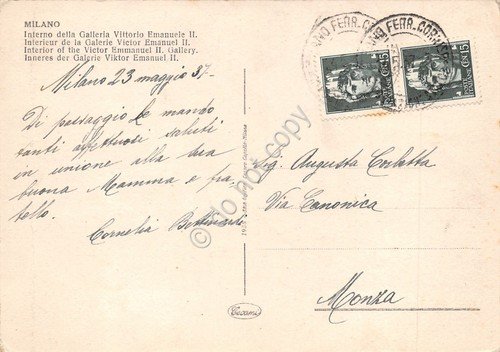 MILANO
Interno della Galleria Vittorio Emanuele II.
Interieur de la Galerie Victor Emanuel II.
Interior of the Victor Emmanuel II. Gallery.
Inneres der Galerie Viktor Emanuel II.
Milano 23 maggio 37-
Di passaggio Le mando
tanti affettuosi saluti
in unione alla sua
buona Mamma e fra-
tello.
Cornelia
Sig. Augusta
Via Canonica
Monza
Cesami
FERR. COR
FERR. CORR
CENT 15
CENT 15
do not copy